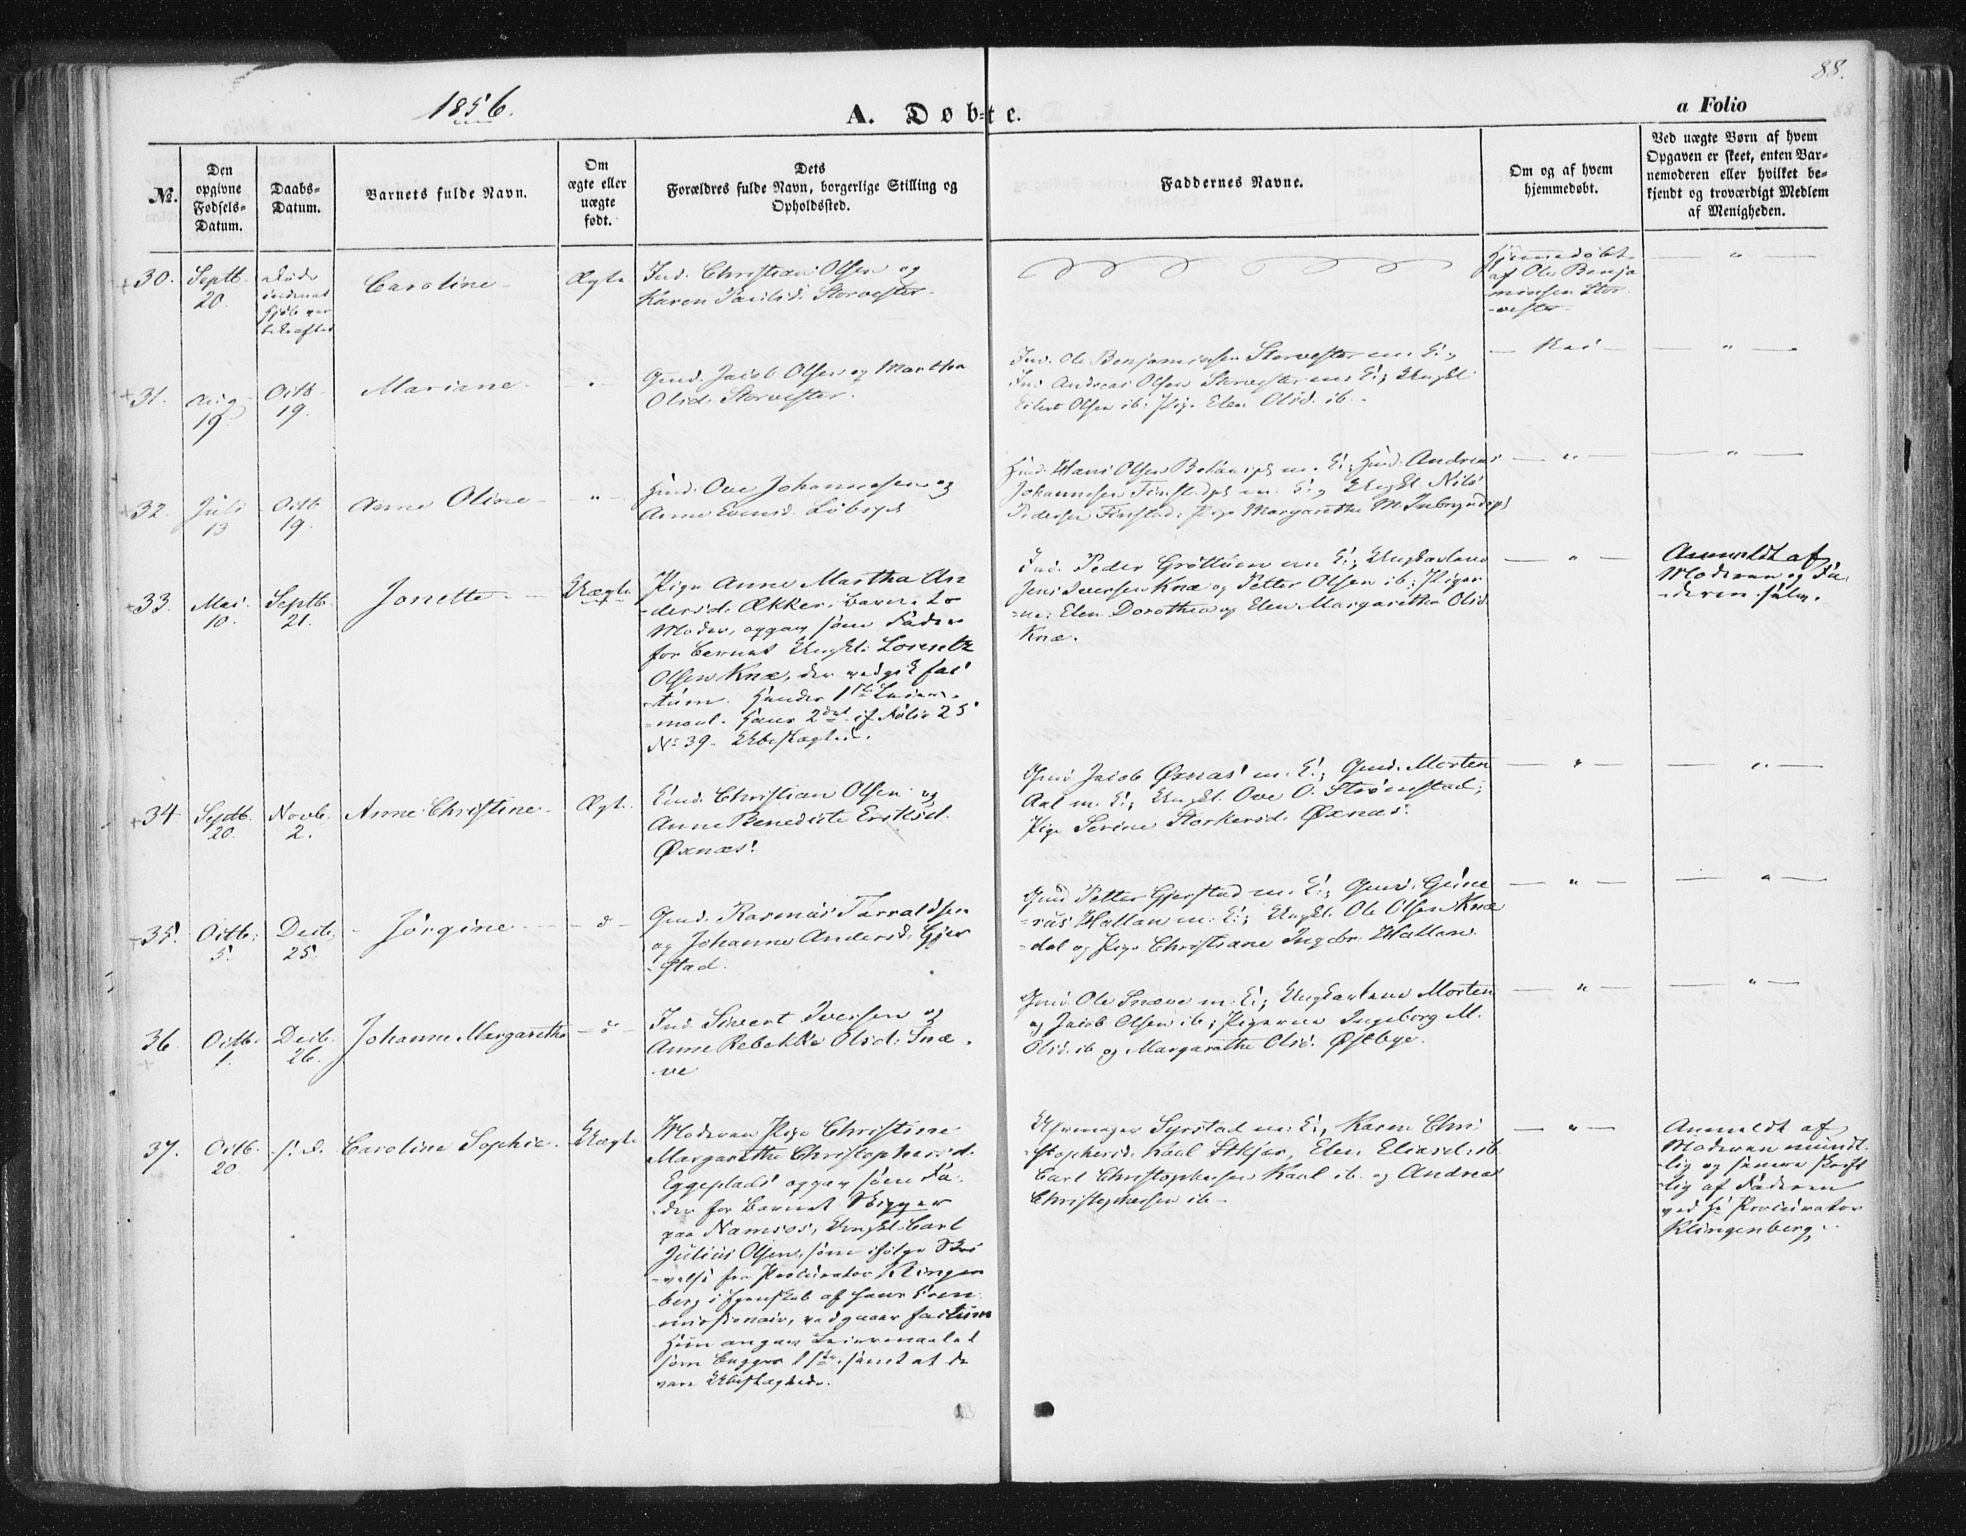 88.
1856.
A. Døbte.
a Folio
No.
Den opgivne Fødsels-Datum.
Daabs-Datum.
Barnets fulde Navn.
Om ægte eller uægte født.
Dets Forældres fulde Navn, borgerlige Stilling og Opholdssted.
Faddernes Navne.
Om og af hvem hjemmedøbt.
Ved uægte Børn af hvem Opgaven er skeet, enten Barnemoderen eller hvilket bekjendt og troværdigt Medlem af Menigheden.
30.
Septb. 20.
døde
Caroline
Ægte
Ind. Christian Olsen og
Karen Paulsd. Storvester.
Hjemmedøbt
af Ole Benja
minsen Stor
-vester.
31.
Aug 19.
Octb. 19.
Mariane
Gmd. Jacob Olsen og Martha
Olsd. Storvester.
Ind. Ole Benjaminsen Storvester m. K.;
Ind Andreas Olsen Storvester m. K.; Ungk.
Eilert Olsen ib; Pige Elen Olsd. ib.
Nei
32.
Juli 13
Octb 19.
Anne Oline
"
Huud. Ove Johannesen og
Anne Evensd.
Huud. Hans Olsen m. K.; Huud. Andreas
Johannesen m. K.; Ungk. Nils
Pedersen Finstad; Pige Margarethe M.
33.
Mai. 10.
Septb. 21.
Jonette
Uægte
Pige Anne Martha An
-dersd. Ækker, Barnets
Moder, opgav som Fader
for Barnet Ungk. Lorentz
Olsen Knæ, der vedgik fac
-tum. Hendes 1ste Leier
-maal. Hans 2det cf. Folio 25
No 39. Ubeslægtede.
Ind. Peder Grøttum m K.; Ungkarlene
Jens Iversen Knæ og Petter Olsen ib; Piger
-ne: Elen Dorothea og Elen Margaretha Olsd.
Knæ.
Anmeldt af
Moderen og Fa
-deren selv.
34.
Septb. 20.
Novb. 2.
Anne Christine
Ægte
Christian Olsen og
Anne Benedicte Eriksd.
Øxnæs.
Gmd. Jacob Øxnæs m. K.; Gmd. Morten
Aal m. K.; Ungk. Ove O. Strømstad;
Pige Serine Storkersd. Øxnæs.
35.
Octb. 5.
Decb. 25.
Jørgine
d
Gmd. Rasmus Torvaldsen
og Johanne Andersd. Gjer
-stad.
Gmd Petter Gjerstad m. K.; Gmd.
Hallan m. K.; Ungk. Ole Olsen Knæ
-dal og Pige Christiane Ingebr. Hallan
36.
Octb. 1.
Decb. 26.
Johanne Margaretha
d
Ind. Sivert Iversen og
Anne Rebekka Olsd. Snæ
-ve
Gmd. Ole Snæve m. K.; Ungkarlene Morten
og Jacob Olsen ib; Pigerne Ingeborg M.
Olsd. ib og Margarethe Olsd. Østbye.
37.
Octb. 20.
s. d.
Caroline Sophie
Uægte
Moderen Pige Christine
Margarethe Christophersd.
opgav som Fa
-der for Barnet Skipper
paa Namsos, Ungk. Carl
Julius Olsen, som ifølge Skri
-velse fra Procurator Klingen
berg i Egenskab af hans Com
-missionair, vedgaaer factum
Hun angav Leiermaalet
som begges 1ste, samt at de
vare Ubeslægtede.
Syrstad m. K.; Karen Chri
-stophersd., Elen Eliasd. ib.
Carl Christophersen ib. og Andreas
Christophersen ib.
Anmeldt af
Moderen mundt
-lig og senere skrift
-lig af Faderen
ved Hr Procurator
Klingenberg.